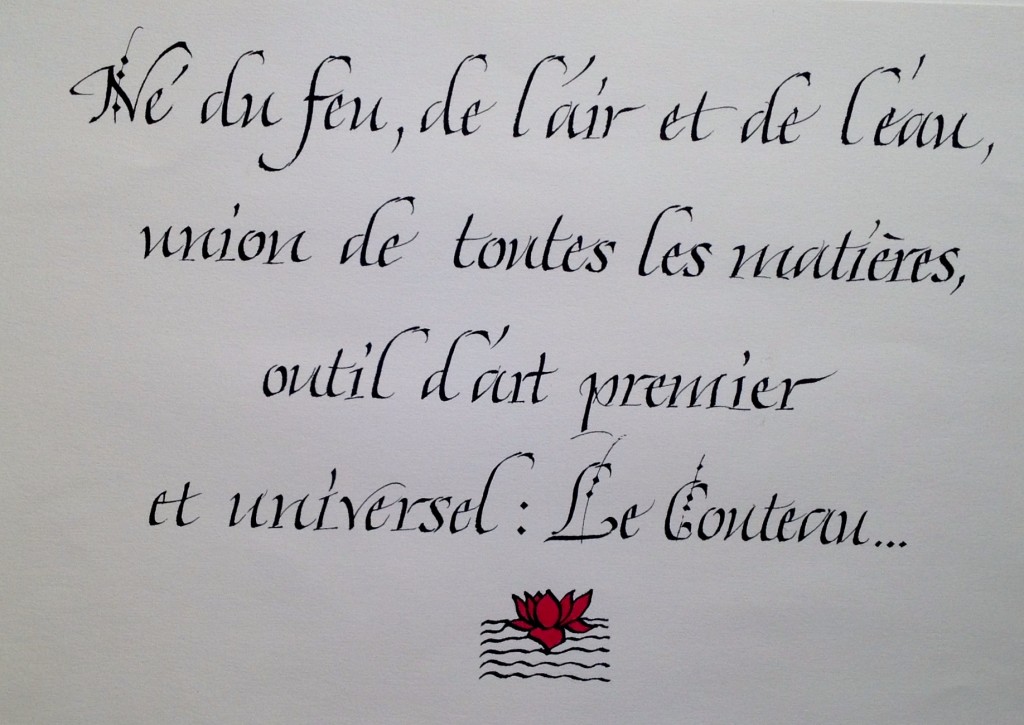 Né du feu, de l'air et de l'eau,
union de toutes les matières,
outil d'art premier
et universel : Le Couteau...